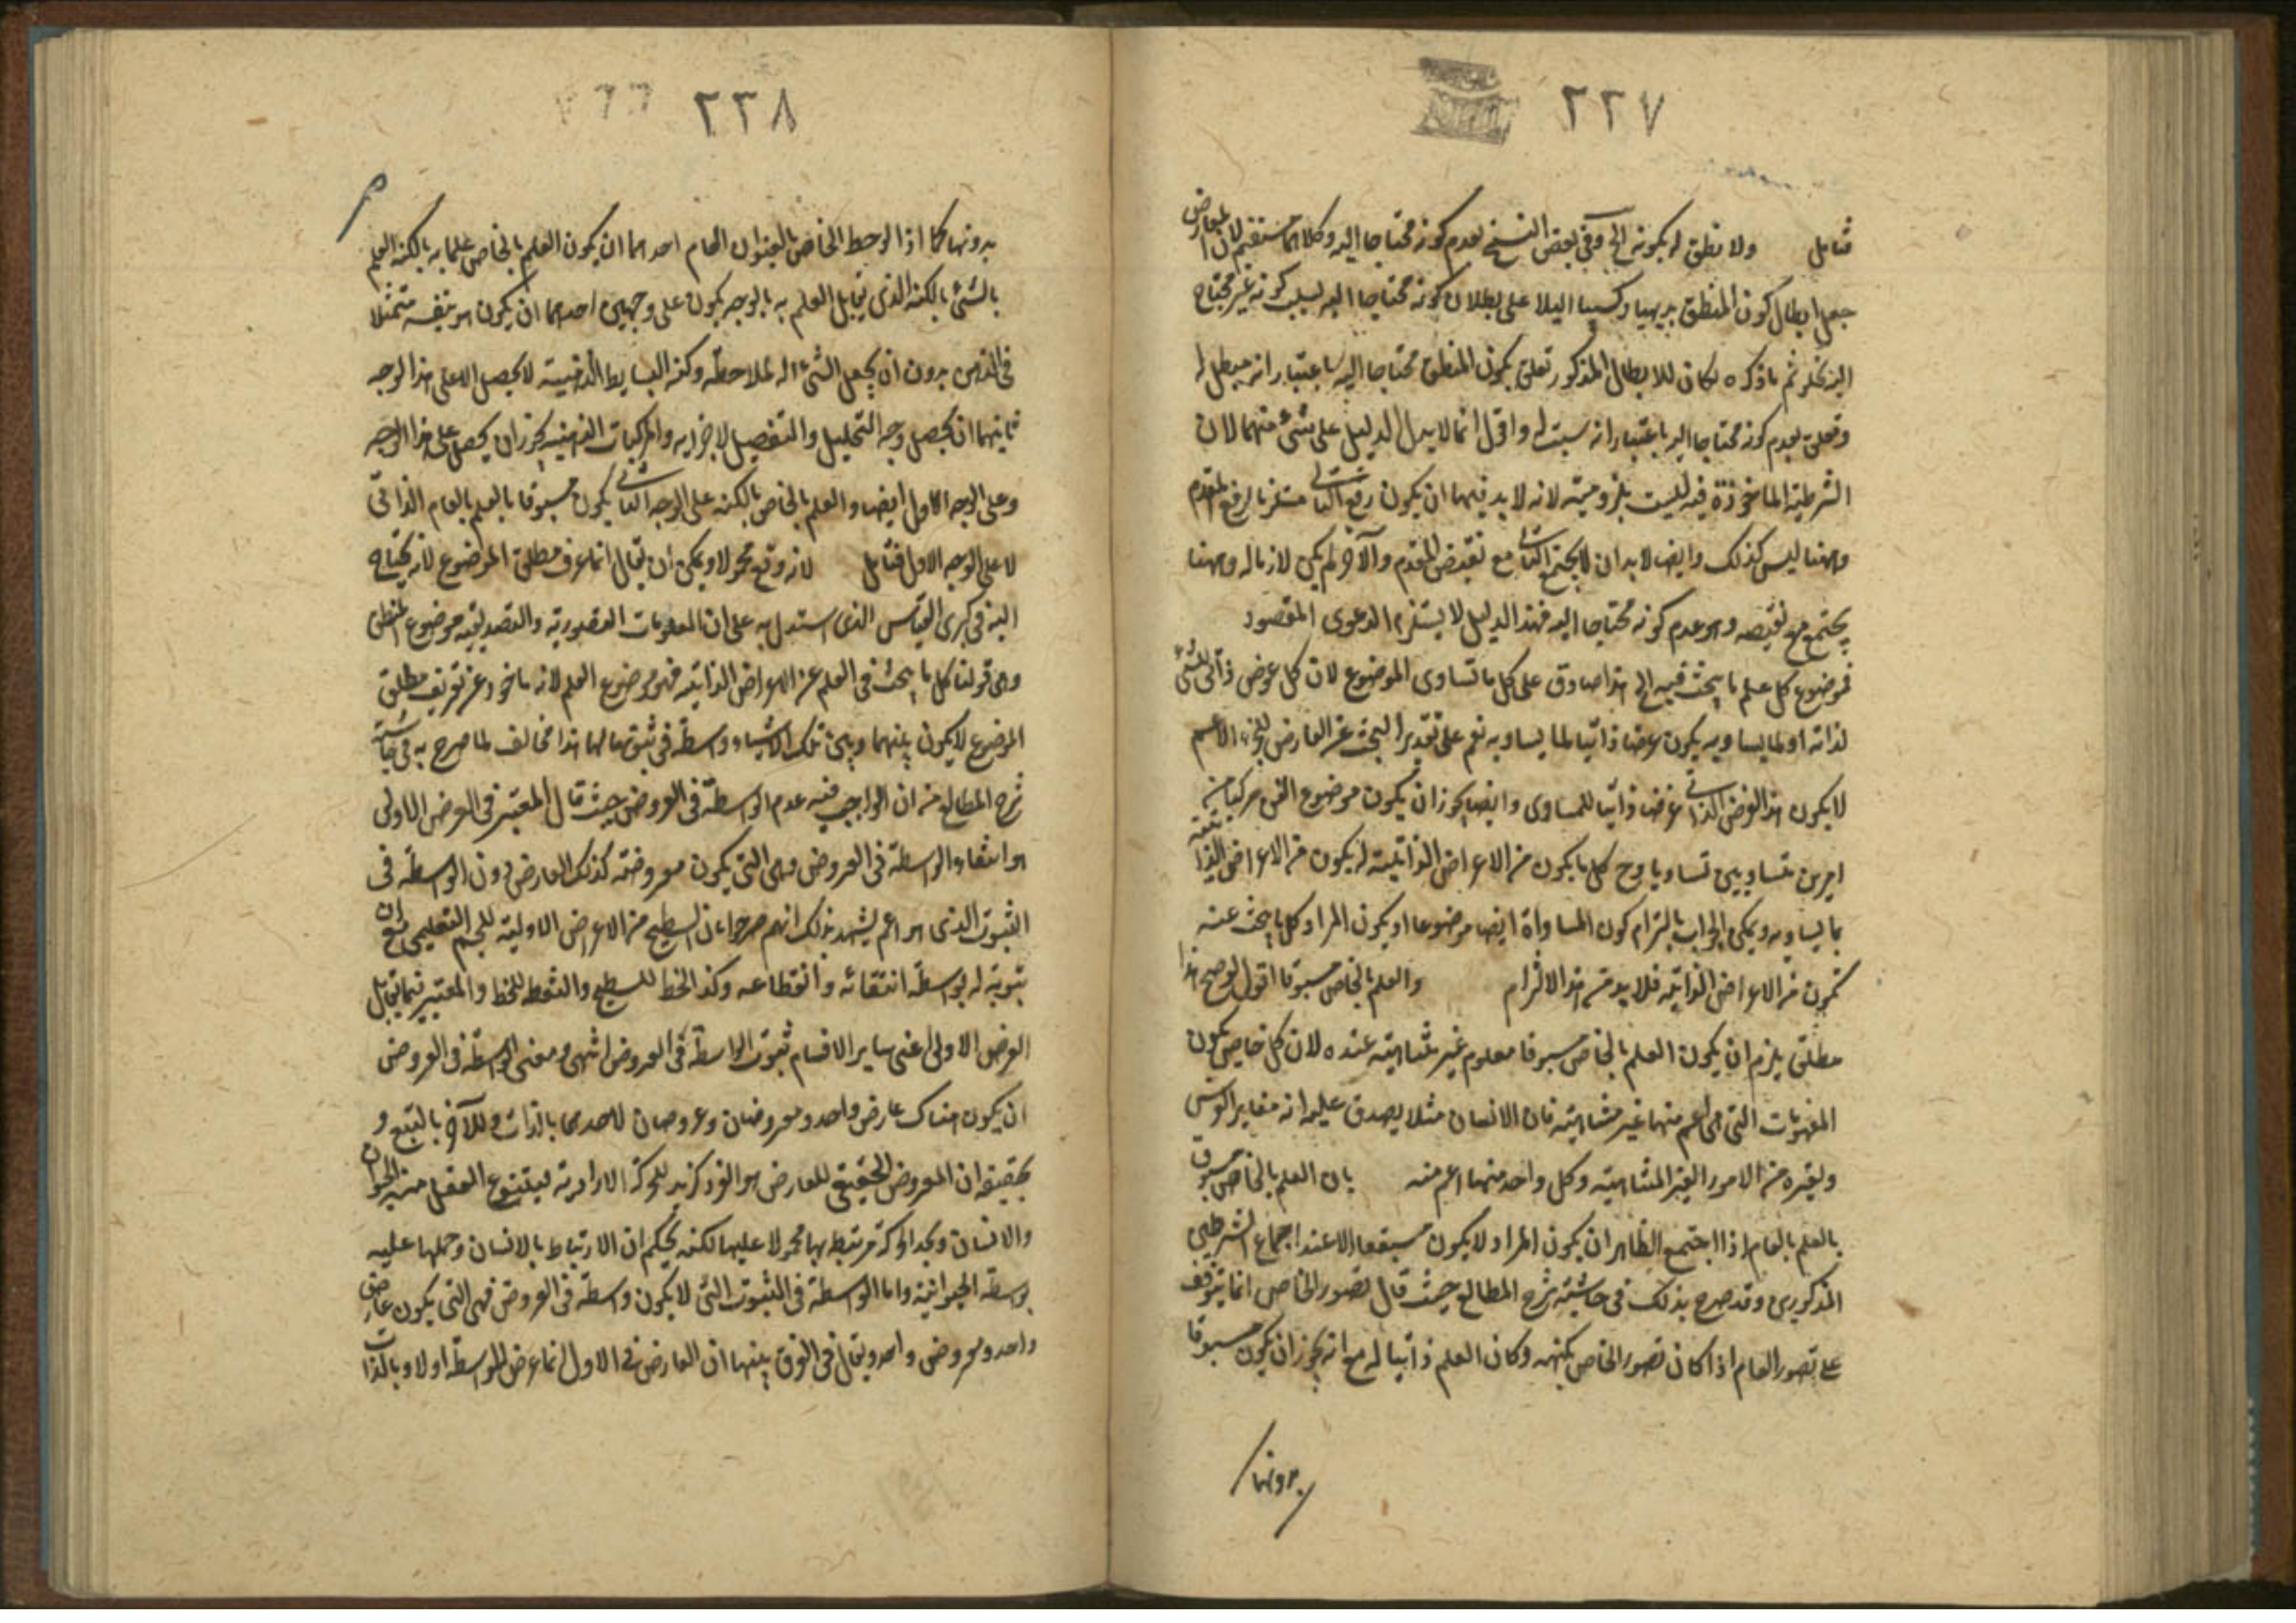 ٢٢٧
فتأمل ولا تعلق له بكونه الخ وفي بعض النسخ بعدم كونه محتاجا اليه وكلاهما مستقيم لان المعارض
جعل ابطال كون المنطق بديهيا وكسبيا دليلا على بطلان كونه محتاجا اليه بسبب كونه غير محتاج
اليه ثم ما ذكره لكان للابطال المذكور تعلق بكون المنطق محتاجا اليه باعتبار انه مبطل له
وتعلق بعدم كونه محتاجا اليه باعتبار انه مثبت له واقول انما لا يدل الدليل على شئ منهما لان
الشرطية الماخوذة فيه ليست بلزومية لانه لا بد فيها ان يكون رفع التالى مستلزما لرفع المقدم
وههنا ليس كذلك وايضا لا بد ان لا يجتمع التالى مع نقيض المقدم والآخر لم يكن لازما له وههنا
يجتمع مع نقيضه وهو عدم كونه محتاجا اليه فهذا الدليل لا يستلزم الدعوى المقصود
فموضوع كل علم ما يبحث فيه الخ هذا صادق على كل ما تساوى الموضوع لان كل عرض ذاتى للشئ
لذاته او لما يساويه يكون عرضا ذاتيا لما يساويه نعم على تقدير البحث عن العارض للجزء الاعم
لا يكون هذا العرض الذاتى عرضا ذاتيا للمساوى وايضا يجوز ان يكون موضوع الفن مركبا من
امرين متساويين تساويا وح كل ما يكون من الاعراض الذاتية له يكون من الاعراض الذاتية
لما يساويه ويمكن الجواب بالتزام كون المساواة ايضا موضوعا او يكون المراد كل ما يبحث عنه
تكون من الاعراض الذاتية فلا بد من هذا الالتزام والعلم بالخاص مسبوقا اقول لو صح هذا
مطلق يلزم ان يكون العلم بالخاص مسبوقا معلوم غير متناهية عنده لان كل خاص يكون
المفهومات التى هى اعم منها غير متناهية فان الانسان مثلا يصدق عليه انه مغاير الفرس
ولغيره من الامور الغير المتناهية وكل واحد منها اعم منه بان العلم بالخاص مسبوق
بالعلم بالعام اذا اجتمع الظاهر ان يكون المراد لا يكون مسبوقا الا عند اجتماع الشرطين
المذكورين وقد صرح بذلك فى حاشية شرح المطالع حيث قال تصور الخاص انما يتوقف
على تصور العام اذا كان تصور الخاص بكنهه وكان العلم ذاتيا له مع انه يجوز ان يكون مسبوقا
بدونها
٢٢٨
بدونها كما اذا لوحظ الخاص بالعنوان العام احدهما ان يكون العلم بالخاص علما به بالكنه العلم
بالشئ بالكنه الذى يقابل العلم به بالوجه يكون على وجهين احدهما ان يكون هو بنفسه متمثلا
فى الذهن بدون ان يجعل الشئ آلة لملاحظته وكنه البسايط الذهنية لا يحصل الا على هذا الوجه
ثانيهما ان يحصل وجه التحليل والتفصيل لاجزايه والمركبات الذهنية يجوز ان يحصل على هذا الوجه
وعلى الوجه الاول ايضا والعلم بالخاص بالكنه على الوجه الثانى يكون مسبوقا بالعلم بالعام الذاتى
لا على الوجه الاول فتأمل لانه وقع محمولا ويمكن ان يقال انما عرف مطلق الموضوع لانه يحتاج
اليه فى كبرى القياس الذى استدل به على ان المعلومات التصورية والتصديقية موضوع المنطق
وهى قولنا كل ما يبحث فى العلم عن الاعراض الذاتية فهو موضوع العلم لانه ماخوذ عن تعريف مطلق
الموضوع لا يكون بينهما وبين تلك الاشياء واسطة فى ثبوتها لها هذا مخالف لما صرح به فى حاشية
شرح المطالع من ان الواجب فيه عدم الواسطة فى العروض حيث قال المعتبر فى العرض الاولى
هو انتفاء الواسطة فى العروض وهى التى يكون معروضة كذلك العارض دون الواسطة فى
الثبوت الذى هو اعم يشهد بذلك انهم صرحوا بان السطح من الاعراض الاولية للجسم التعليمى مع ان
ثبوته له بواسطة انتهائه وانقطاعه وكذا الخط للسطح والنقطة للخط والمعتبر فيما يقابل
العرض الاولى اعنى ساير الاقسام ثبوت الواسطة فى العروض انتهى ومعنى الواسطة فى العروض
ان يكون هناك عارض واحد ومعروضان وعروضان لاحدهما بالذات وللآخر بالتبع و
حقيقه ان المعروض الحقيقى للعارض هو الفرد كزيد للحركة الارادية لينتزع العقل منه الحيوان
والانسان ويجد الحركة مرتبطة بها محمولا عليها لكنه يحكم ان الارتباط بالانسان وحملها عليه
بوسطة الحيوانية واما الواسطة فى الثبوت التى لا يكون واسطة فى العروض فهى التى يكون عارض
واحد ومعروض واحد ويقال فى الفرق بينهما ان العارض فى الاول انما عرض للواسطة اولا وبالذات